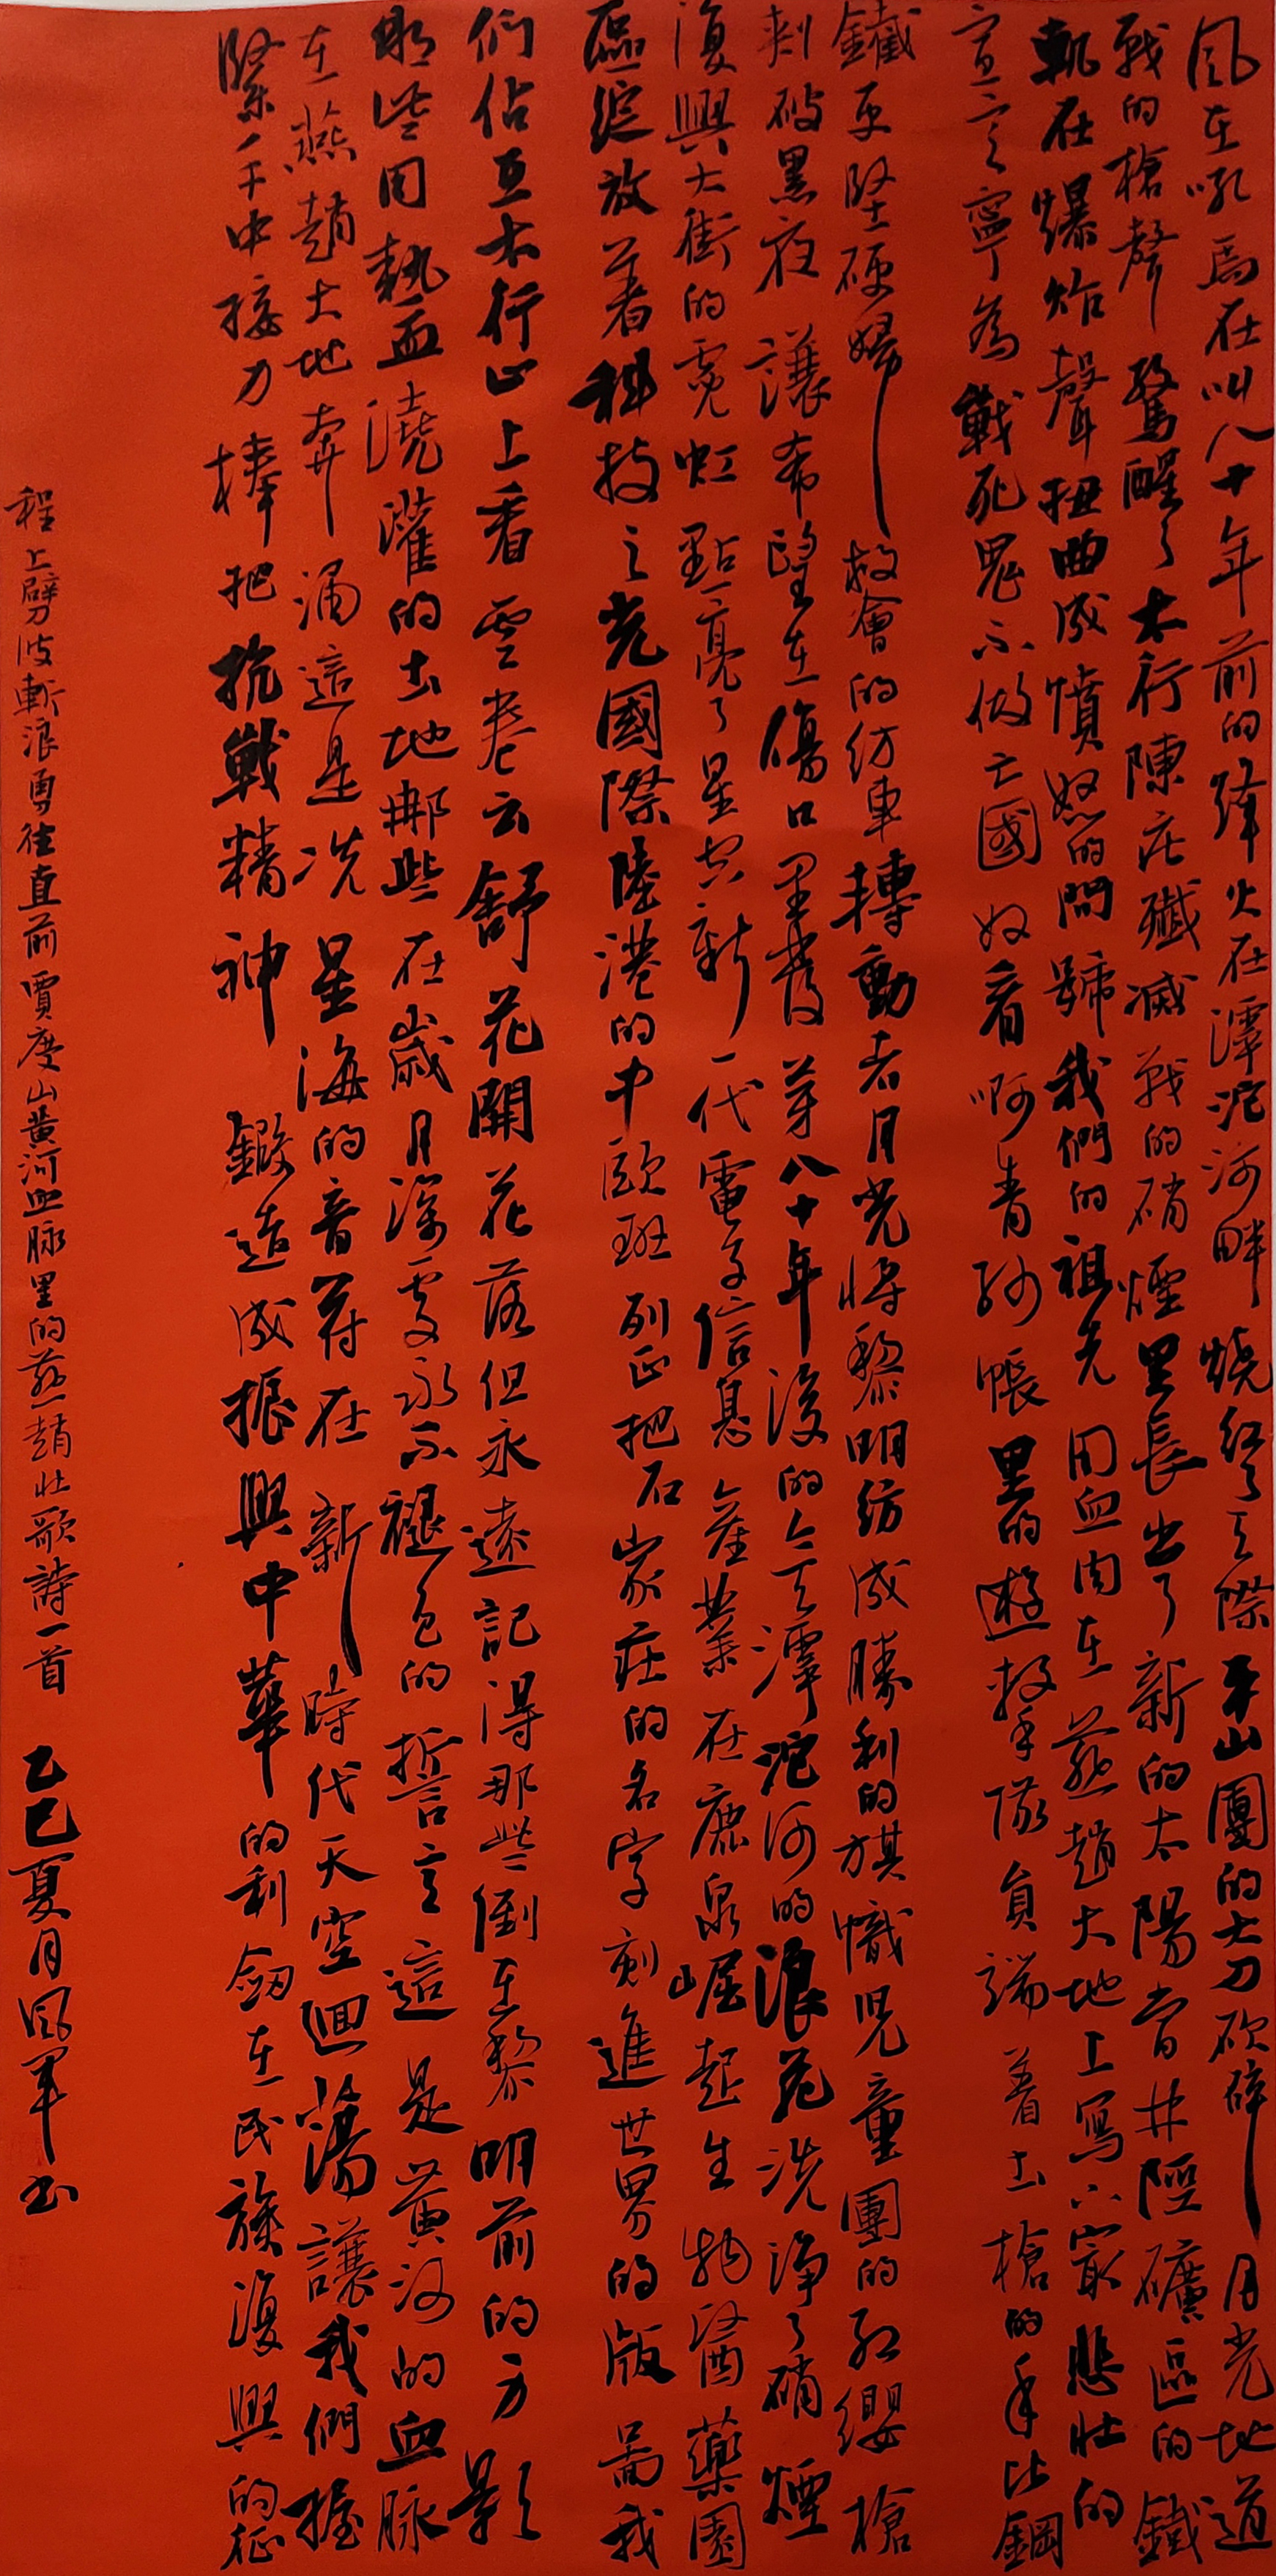 風在吼馬在叫八十年前的烽火在滹沱河畔燒紅了天際平山團的大刀砍碎月光地道
戰的槍聲驚醒了太行陳莊殲滅戰的硝煙里長出了新的太陽當井陘礦區的鐵
軌在爆炸聲扭曲成憤怒的問號我們的祖先用血肉在燕趙大地上寫下最悲壯的
宣言寧為戰死鬼不做亡國奴看啊青紗帳里的遊擊隊員端着土槍的手比鋼
鐵更堅硬婦救會的紡車轉動著月光將黎明紡成勝利的旗幟兒童團的紅纓槍
刺破黑夜讓希望在傷口里發芽八十年後的今天滹沱河的浪花洗淨了硝煙
復興大街的霓虹點亮了星空新一代電子信息產業在鹿泉崛起生物醫藥園
區綻放着科技之光國際陸港的中歐班列正把石家莊的名字刻進世界的版圖我
們佔在太行山上看雲卷云舒花開花落但永遠記得那些倒在黎明前的方影
那些用熱血澆灌的土地那些在歲月深處永不褪色的誓言這是黃河的血脉
在燕趙大地奔涌這是冼星海的音符在新時代天空迴蕩讓我們握
緊手中接力棒把抗戰精神鍛造成振興中華的利劍在民族復興的征
程上劈波斬浪勇往直前賈度山黃河血脉里的燕趙壯歌詩一首乙巳夏月風軍书